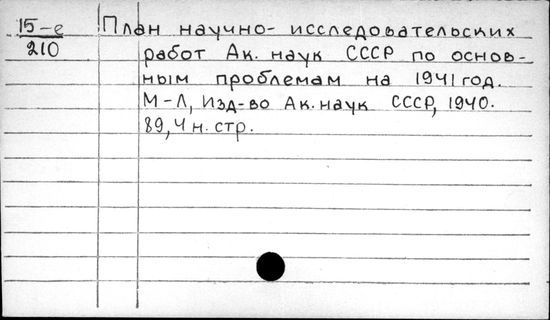 15-е
210
План научно-исследовательских
работ Ак. наук СССР по основ-
ным проблемам на 1941 год.
М-Л, Изд-во Ак. наук СССР, 1940.
89, 4 н. стр.